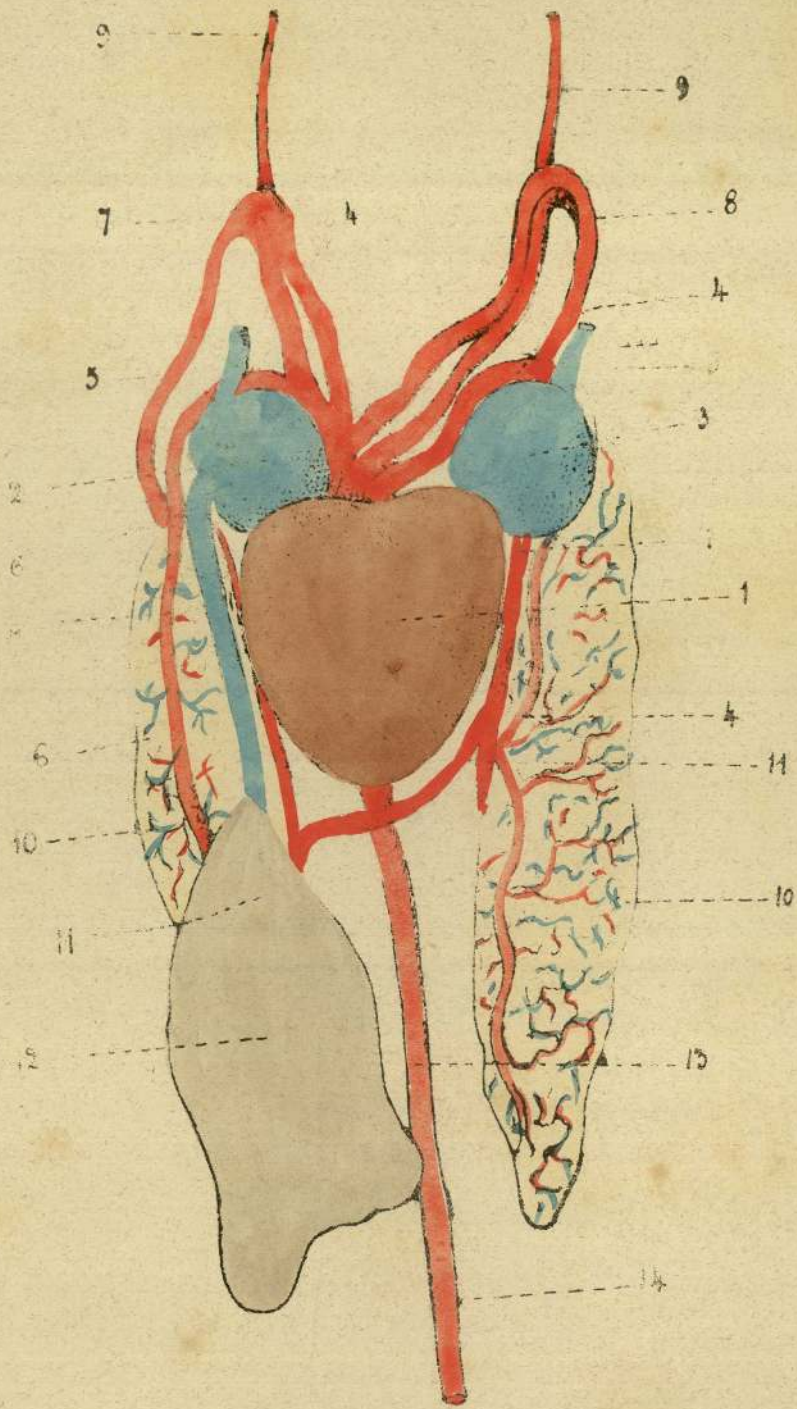 9
9
7
4
8
4
5
3
1
4
6
11
10
10
11
12
13
14